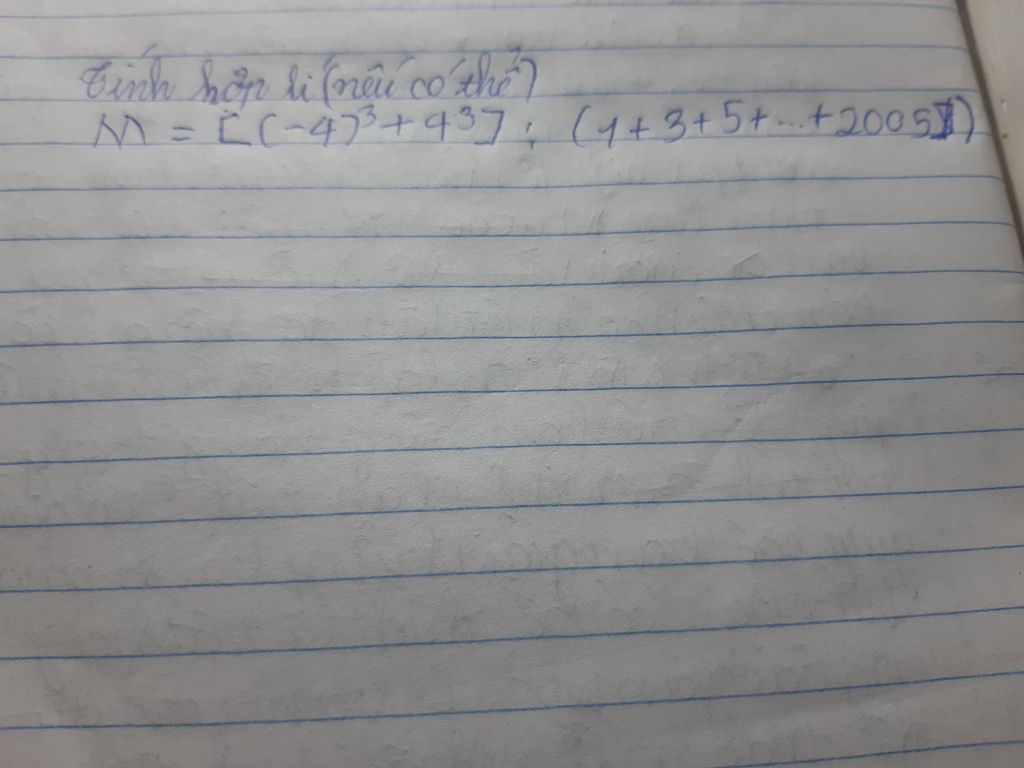 Tính hợp lí (nếu có thể)
M = [(-4)³ + 4³] : (1 + 3 + 5 + ... + 2005)